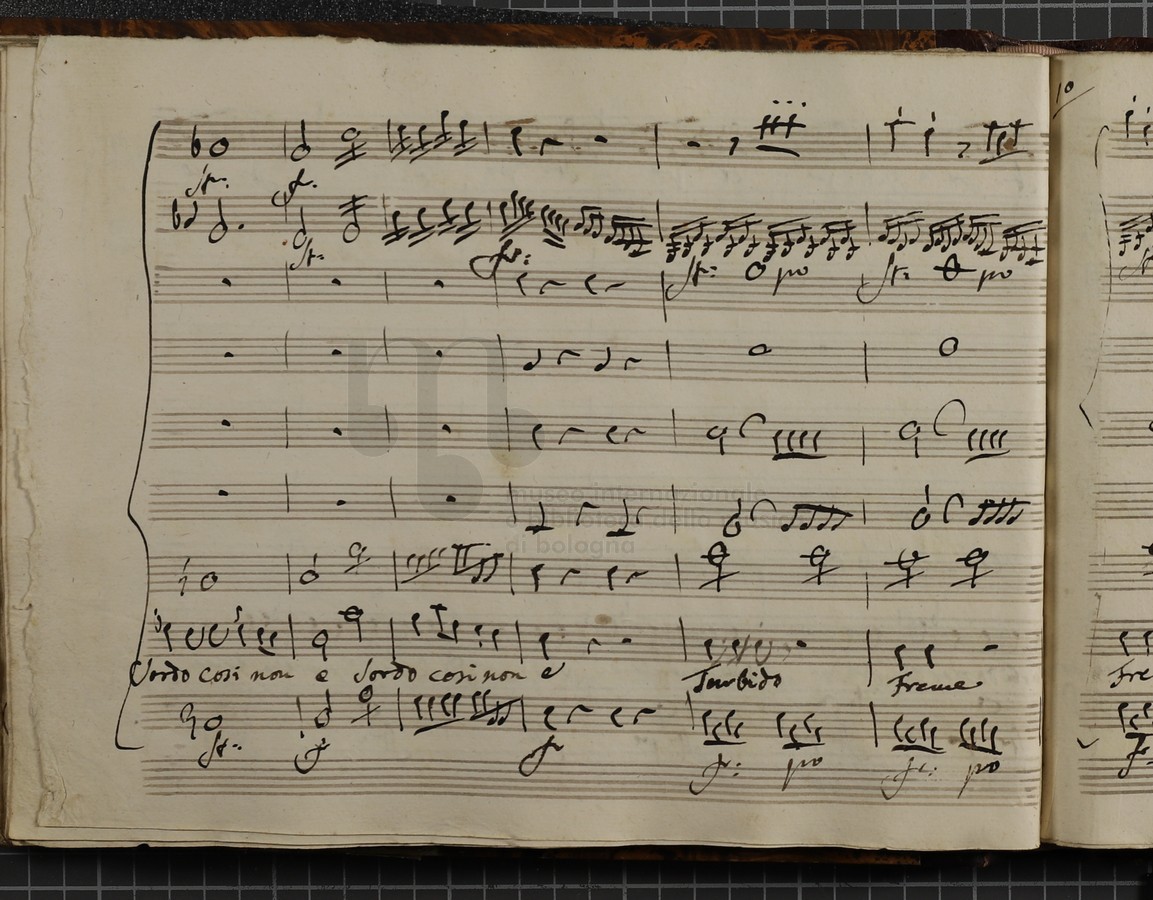 10
fr: f.
fr:
fr:
fr: po fr: po
museo internazionale
e biblioteca della musica
di bologna
Sordo così non è Sordo così non è Turbido Freme Fre
fr: f f fr: po fr: po f: